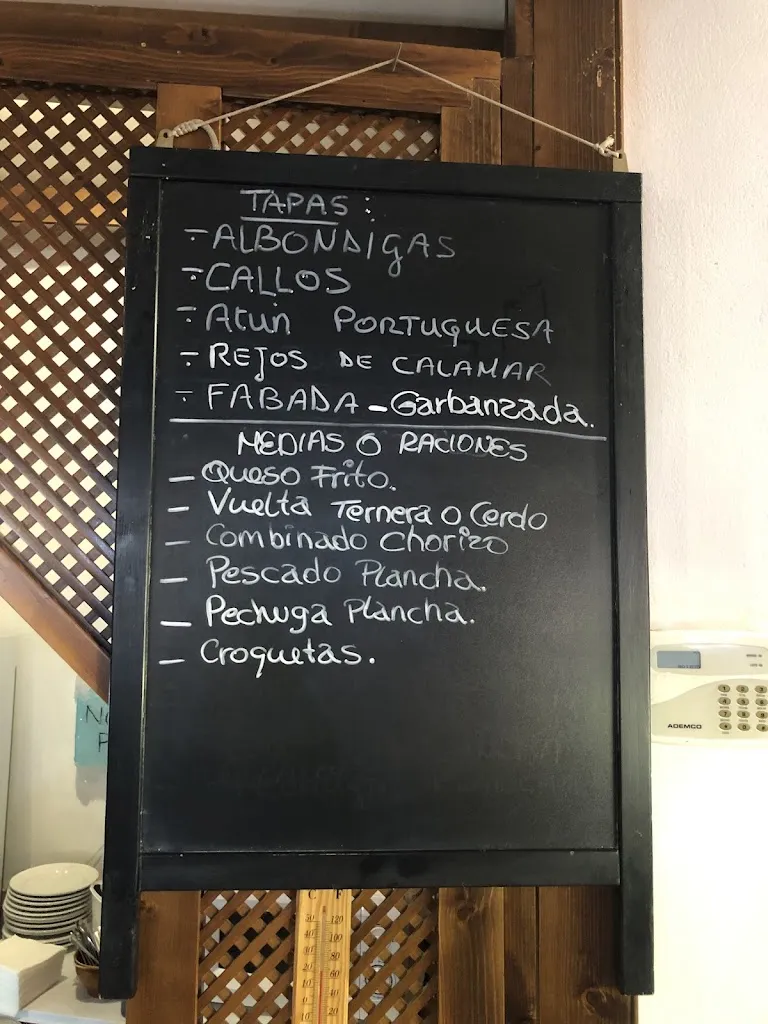 TAPAS:
- ALBONDIGAS
- CALLOS
- Atun PORTUGUESA
- REJOS DE CALAMAR
- FABADA - Garbanzada.
MEDIAS O RACIONES
- Queso Frito.
- Vuelta Ternera o Cerdo
- Combinado Chorizo
- Pescado Plancha.
- Pechuga Plancha.
- Croquetas.
ADEMCO
C F
50 120
40 100
30 80
20 60
10 40
0
10 20